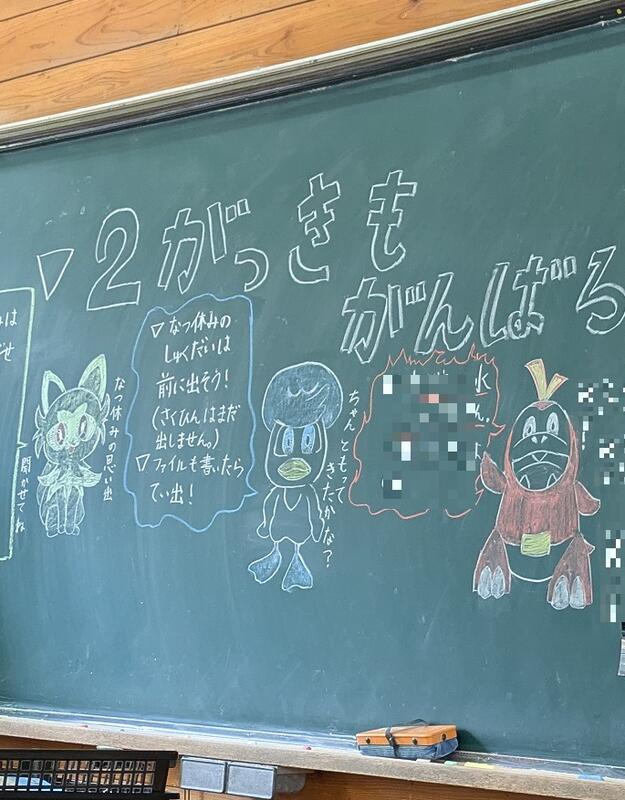 ▽2がっきも
がんばる
は
せ
聞かせてね
なつ休みの思い出
▽なつ休みの
しゅくだいは
前に出そう!
(さくひんはまだ
出しません。)
▽ファイルも書いたら
てい出!
ちゃんともって
きたかな?
水